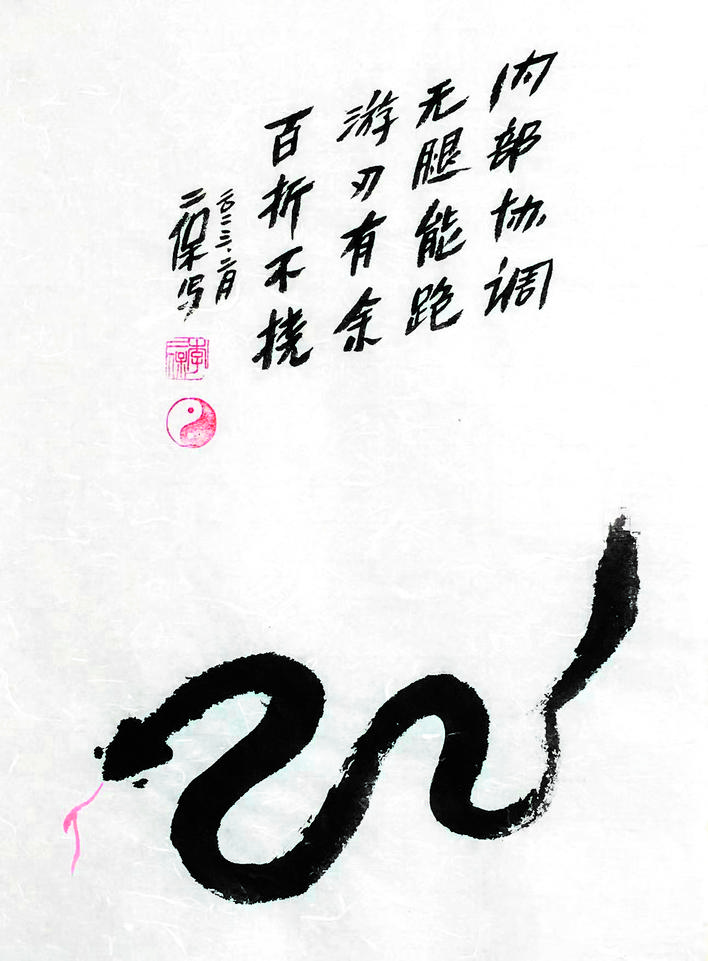 内部协调
无腿能跑
游刃有余
百折不挠
二〇二三.二月
二保写